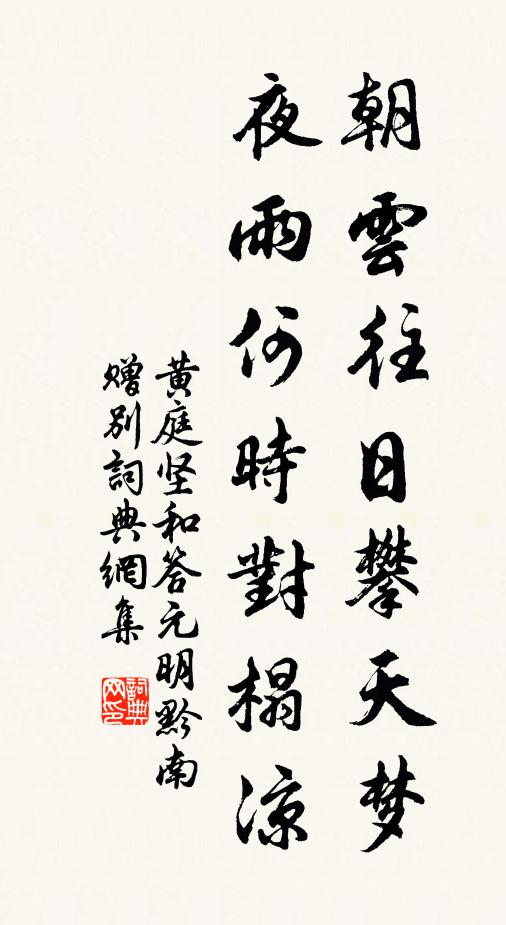 朝雲往日攀天梦
夜雨何時對榻凉
黄庭坚和答元明黔南
赠别詞典網集
詞典网印